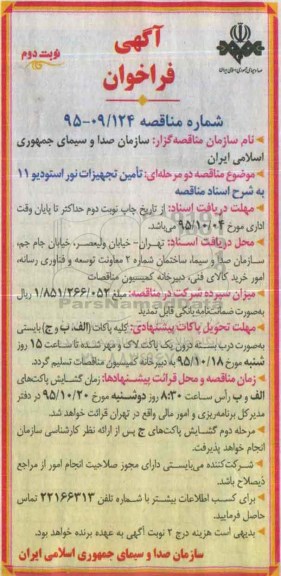 آگهی
فراخوان
نوبت دوم
شماره مناقصه ۹۵-۰۹/۱۲۴
نام سازمان مناقصه‌گزار: سازمان صدا و سیمای جمهوری
اسلامی ایران
موضوع مناقصه دو مرحله‌ای: تأمین تجهیزات نور استودیو ۱۱
به شرح اسناد مناقصه
مهلت دریافت اسناد: از تاریخ چاپ نوبت دوم حداکثر تا پایان وقت
اداری مورخ ۹۵/۱۰/۰۴ می‌باشد.
محل دریافت اسناد: تهران- خیابان ولیعصر، خیابان جام جم،
سازمان صدا و سیما، ساختمان شماره ۲ معاونت توسعه و فناوری رسانه،
امور خرید کالای فنی، دبیرخانه کمیسیون مناقصات
میزان سپرده شرکت در مناقصه: مبلغ ۱/۸۵۱/۲۶۶/۰۵۲ ریال
به‌صورت ضمانت‌نامه بانکی قابل تمدید
مهلت تحویل پاکات پیشنهادی: کلیه پاکات (الف، ب و ج) بایستی
به‌صورت درب بسته درون یک پاکت لاک و مهر شده تا ساعت ۱۵ روز
شنبه مورخ ۹۵/۱۰/۱۸ به دبیرخانه کمیسیون مناقصات تسلیم گردد.
زمان مناقصه و محل قرائت پیشنهادها: زمان گشایش پاکت‌های
الف و ب رأس ساعت ۸:۳۰ روز دوشنبه مورخ ۹۵/۱۰/۲۰ در دفتر
مدیرکل برنامه‌ریزی و امور مالی واقع در تهران قرائت خواهد شد.
مرحله دوم گشایش پاکت‌های ج پس از ارائه نظر کارشناسی سازمان
انجام خواهد پذیرفت.
شرکت‌کننده می‌بایستی دارای مجوز صلاحیت انجام امور از مراجع
ذیصلاح باشد.
برای کسب اطلاعات بیشتر با شماره تلفن ۲۲۱۶۶۳۱۳ تماس
حاصل فرمایید.
بدیهی است هزینه درج ۲ نوبت آگهی به عهده برنده خواهد بود.
سازمان صدا و سیمای جمهوری اسلامی ایران